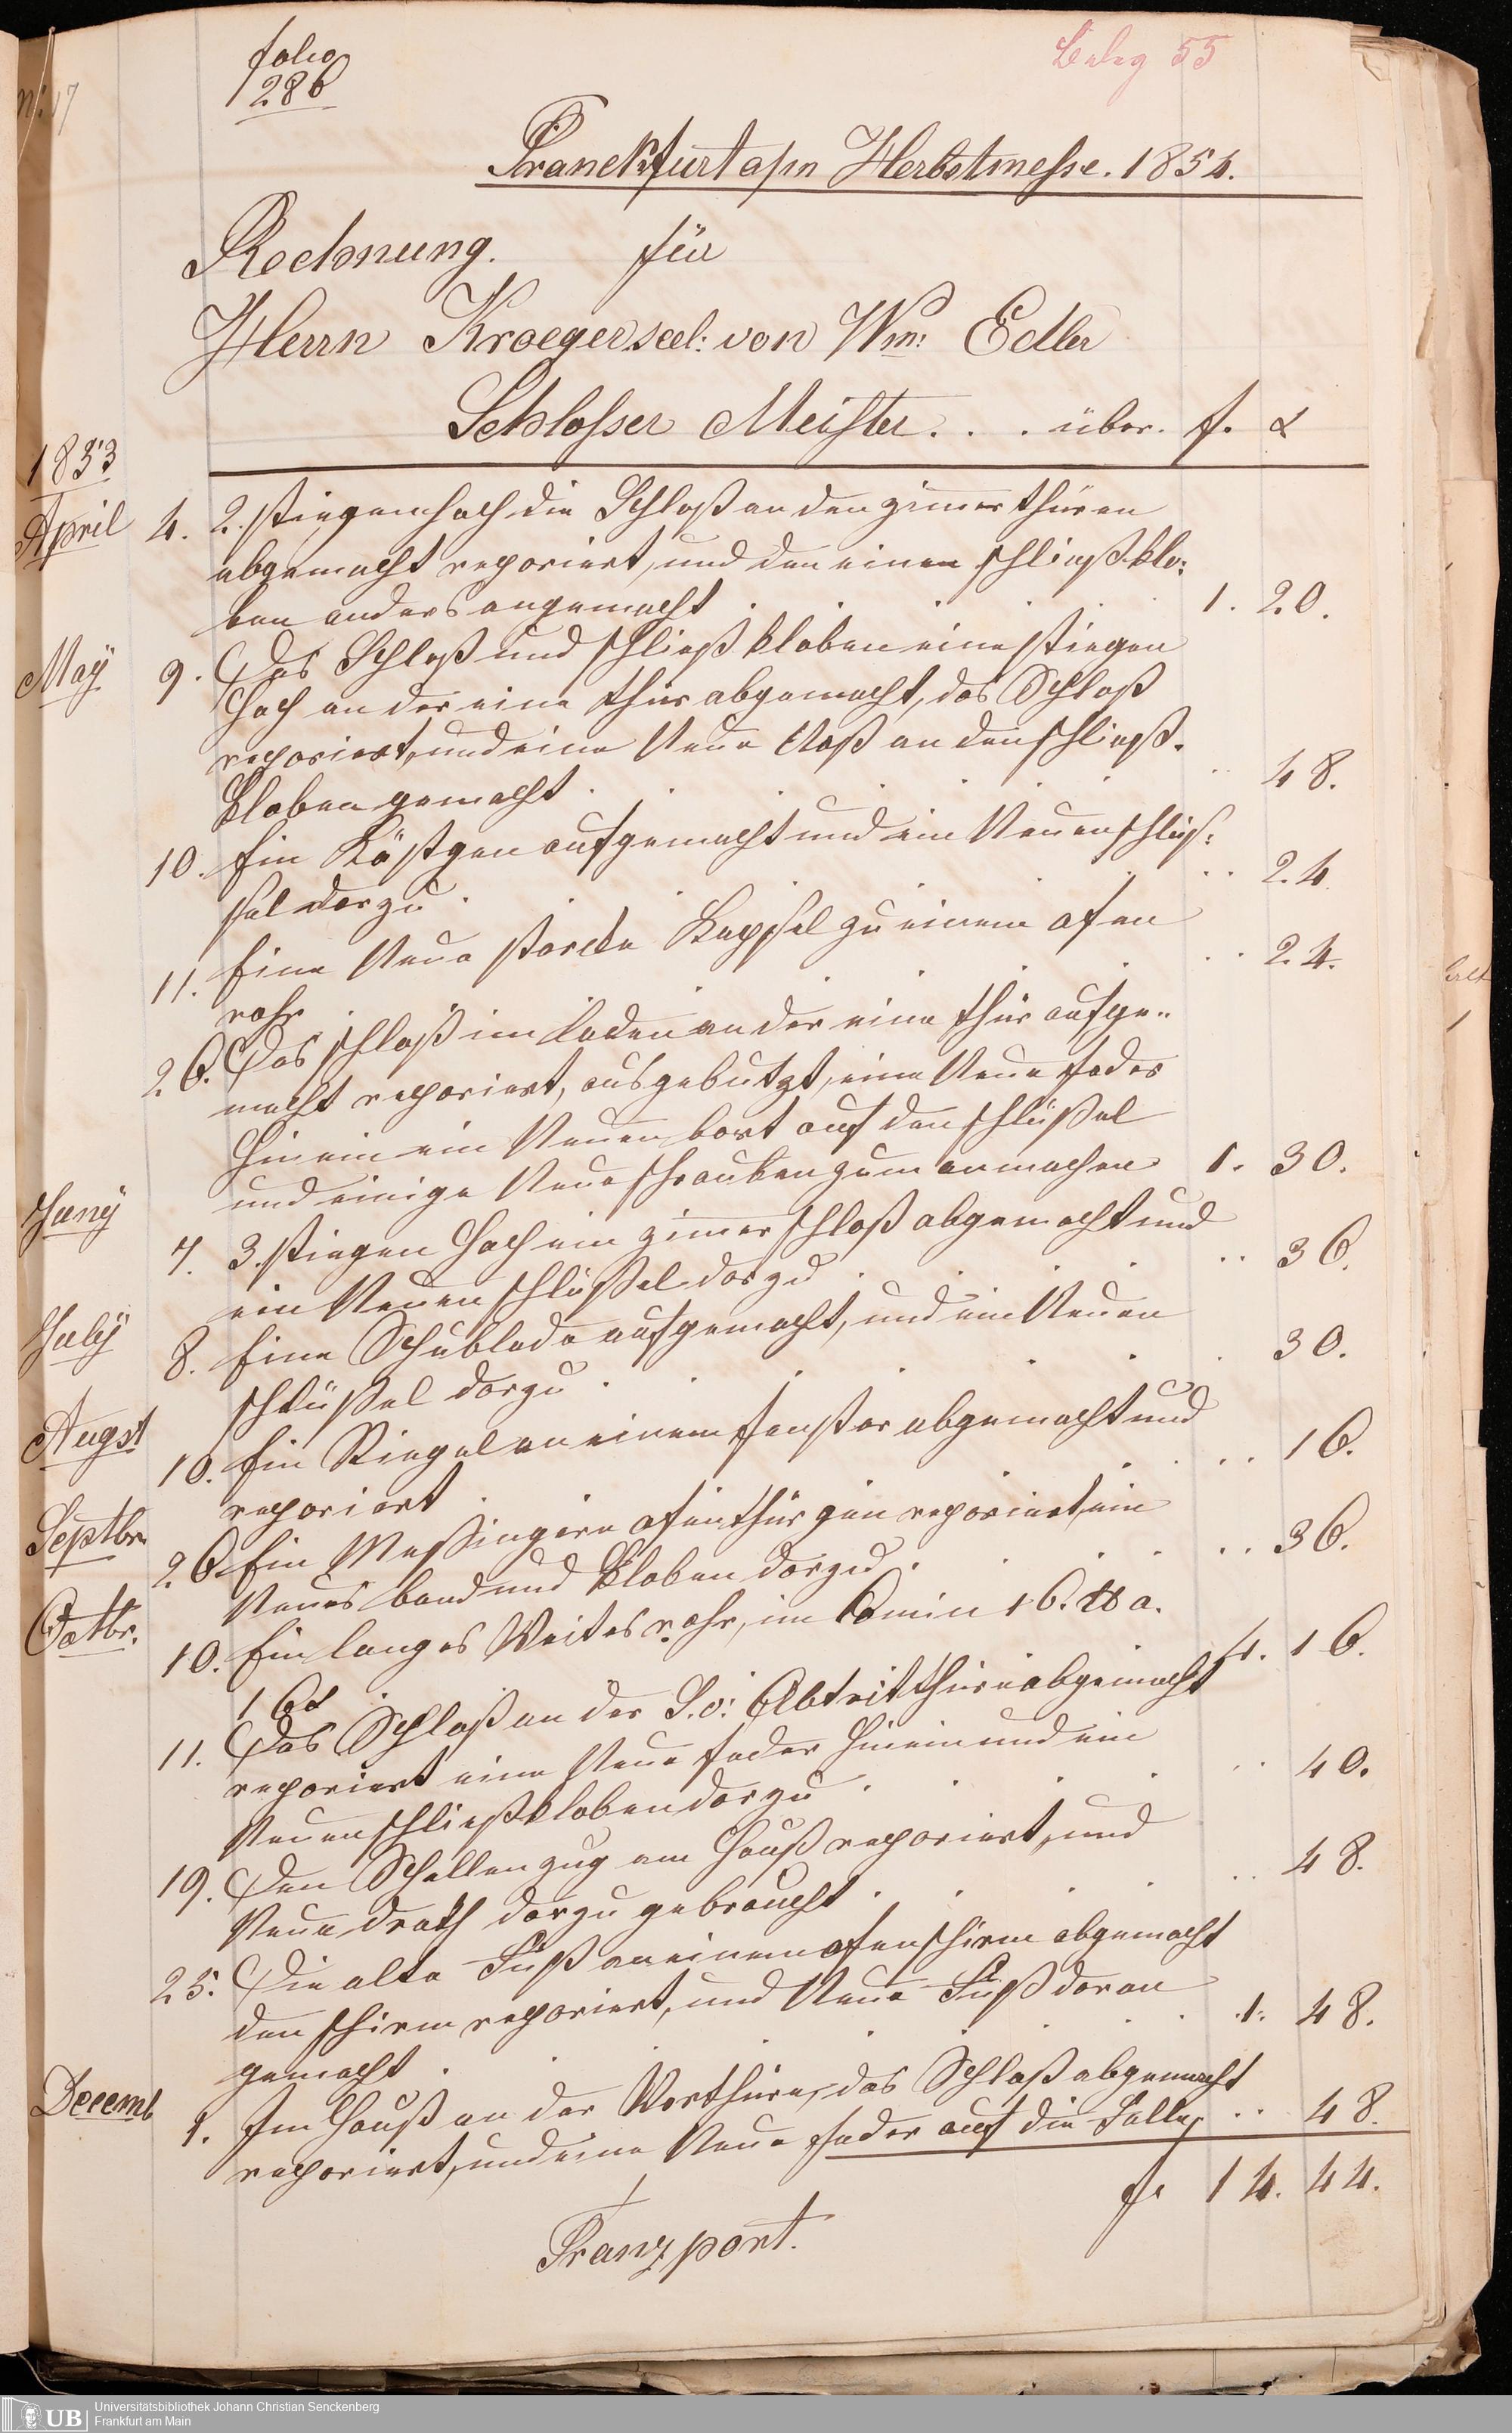 folio
286
Beleg 55
Franckfurt a/m Herbstmesse. 1854.
Rechnung. für
Herrn Kroeger seel: von Wm: Edler
Schlosser Meister. . . über. f. x
1853
April 4. 2. stiegenhoch die Schloß an den zimerthüren
abgemacht repariert, und den einen schließklo:
ben anders angemacht . . . . . 1. 20.
May 9. Das Schloß und schließkloben eine stiegen
hoch an der eine thür abgemacht, das Schloß
repariert, und eine Neue Naß an den schließ.
kloben gemacht . . . . . . 48.
10. Ein Köstgen aufgemacht und ein Neuen schlüs:
sel darzu . . . . . . 24
11. Eine Neue starcke Kapsel zu einem ofen
rohr . . . . . . 24.
26. Das schloß im laden an der eine thür aufge..
macht repariert, ausgebutzt, eine Neue feder
hinein ein Neuen bart auf den schlüßel
und einige Neue schrauben zum anmachen 1. 30.
Juny 7. 3. stiegen hoch ein zimer schloß abgemacht und
ein Neuen schlüßel darzu . . . . 36.
July 8. Eine Schublade aufgemacht, und ein Neuen
schlüßel darzu . . . . . 30.
Augst 10. Ein Riegel an einem fenster abgemacht und
repariert . . . . . . 16.
Septbr. 26. Ein Meßingern ofenthürgen repariert, ein
Neues band und kloben darzu . . . . . 36.
Octbr. 10. Ein langes Weites rohr, im Camin 16. ℔ a.
16x . . . . 4. 16.
11. Das Schloß an der S.v: Abtritthüre abgemacht
repariert eine Neue feder hinein und ein
Neuen schließkloben darzu . . . . . 40.
19. Den Schellenzug am Hauß repariert, und
Neue drath darzu gebraucht . . . . . 48.
25. Die alte Füß an einem ofenschirm abgemacht
den schirm repariert, und Neue Füß daran
gemacht . . . . . . 1. 48.
Decemb 1. Im Hauß an der Vorthüre, das Schloß abgemacht
repariert, und eine Neue feder auf die Falle, . . 48.
f. 14. 44.
Transport.
Universitätsbibliothek Johann Christian Senckenberg
Frankfurt am Main
UB